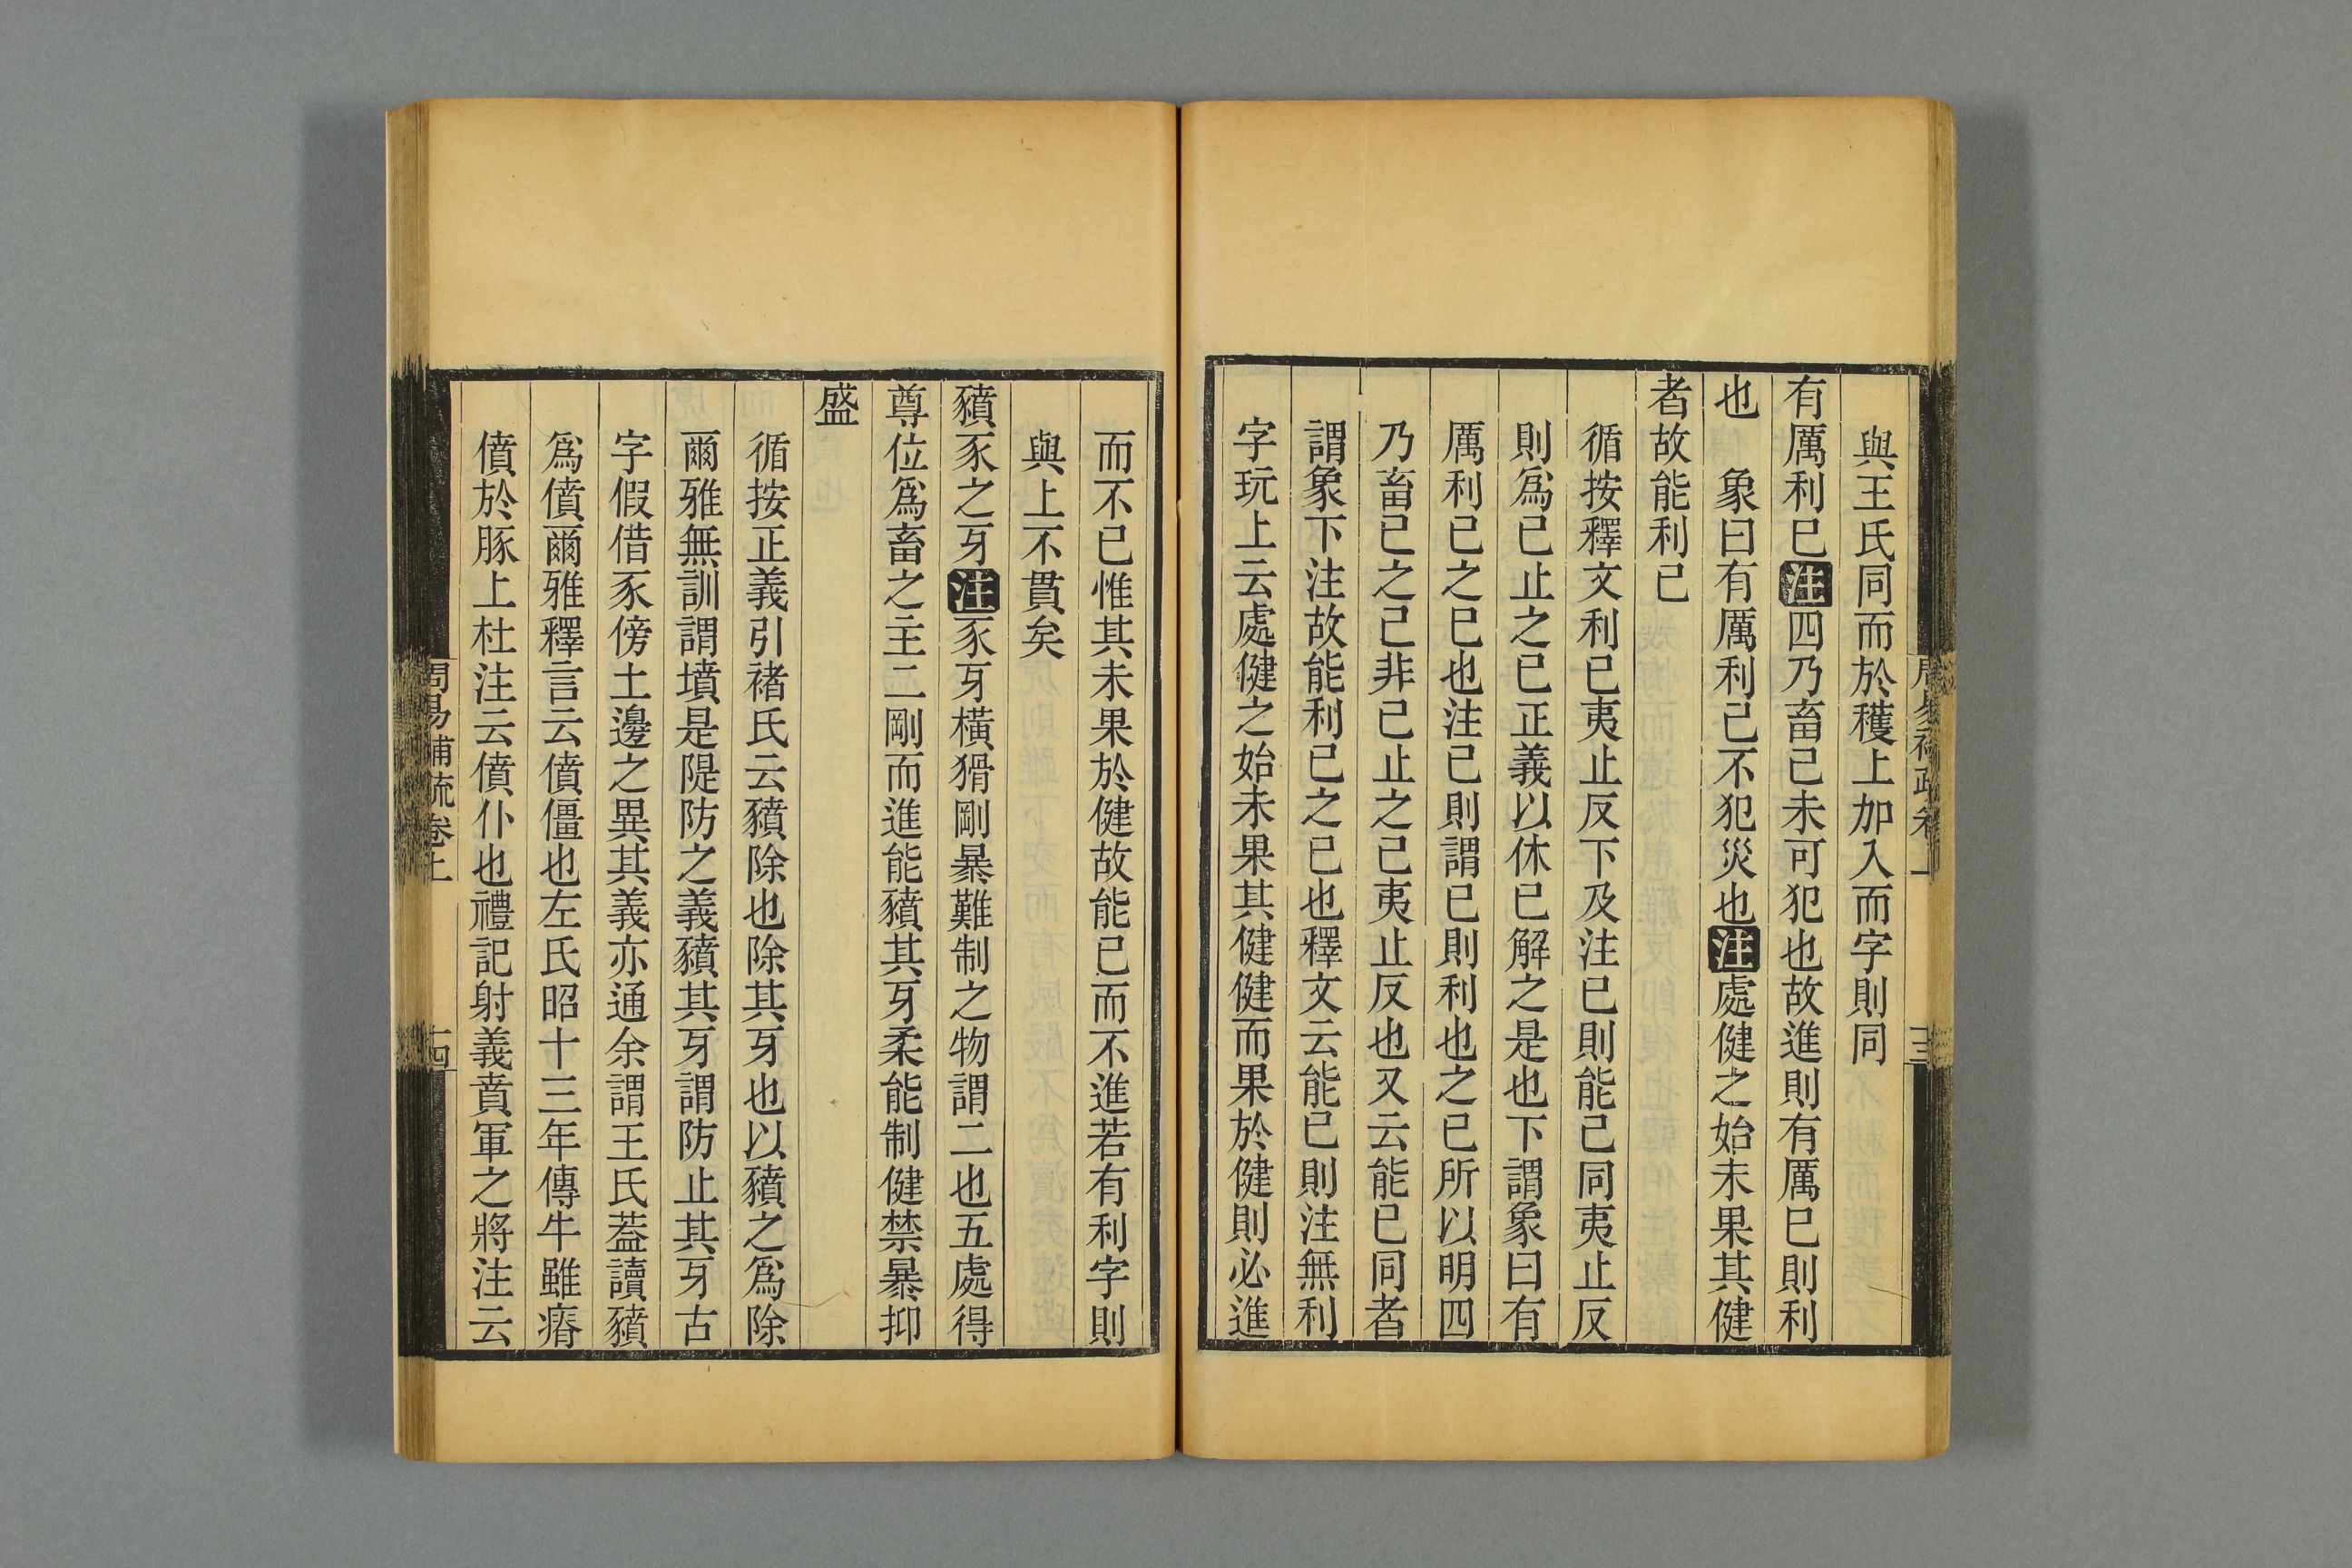 與王氏同而於穫上加入而字則同
有厲利巳注四乃畜己未可犯也故進則有厲巳則利
也　象曰有厲利已不犯災也注處健之始未果其健
者故能利已
循按釋文利已夷止反下及注已則能已同夷止反
則爲已止之已正義以休已解之是也下謂象曰有
厲利已之已也注已則謂已則利也之已所以明四
乃畜己之己非已止之已夷止反也又云能已同者
謂象下注故能利已之已也釋文云能已則注無利
字玩上云處健之始未果其健健而果於健則必進
而不已惟其未果於健故能已而不進若有利字則
與上不貫矣
豶豕之牙注豕牙橫猾剛暴難制之物謂二也五處得
尊位爲畜之主二剛而進能豶其牙柔能制健禁暴抑
盛
循按正義引褚氏云豶除也除其牙也以豶之爲除
爾雅無訓謂墳是隄防之義豶其牙謂防止其牙古
字假借豕傍土邊之異其義亦通余謂王氏蓋讀豶
爲僨爾雅釋言云僨僵也左氏昭十三年傳牛雖瘠
僨於豚上杜注云僨仆也禮記射義賁軍之將注云
周易補疏卷上
十四